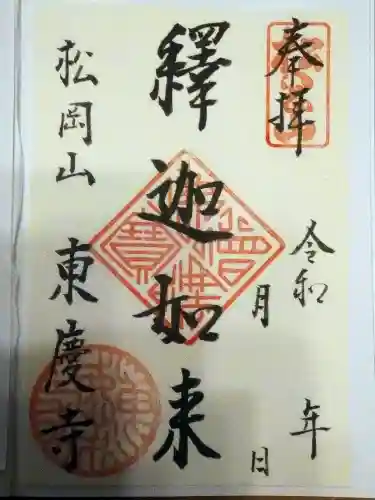 奉拝
令和 年
月 日
釋迦如来
松岡山 東慶寺